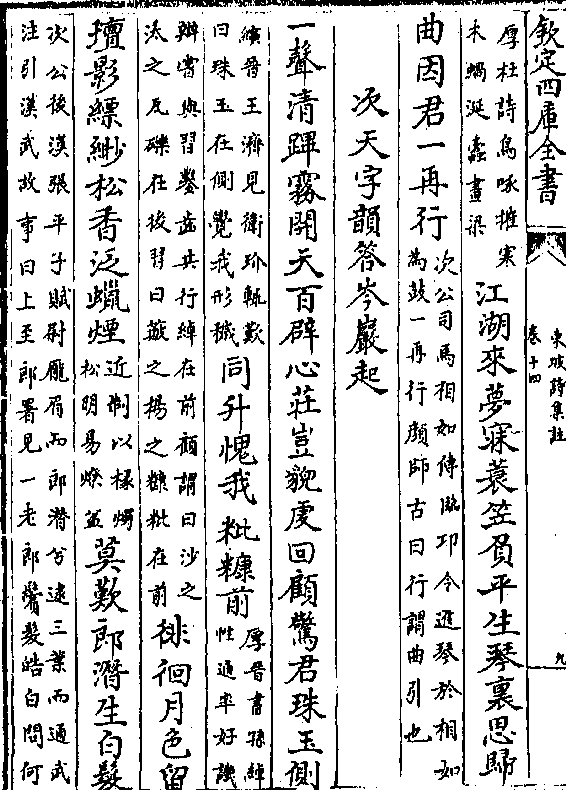 欽定四庫全書
東坡詩集註
卷十四
九
厚杜詩鳥啄摧寒
木蝸涎蠹畫梁
江湖來夢寐蓑笠負平生琴裏思歸
曲因君一再行
次公司馬相如傳臨邛令進琴於相如
為鼓一再行顔師古曰行謂曲引也
次天字韻答岑巖起
一聲清蹕霧開天百辟心莊豈貌虔回顧驚君珠玉側
縯晉王濟見衛玠輒歎
曰珠玉在側覺我形穢
同升愧我粃糠前
厚晉書孫綽
性通率好譏
嘗與習鑿齒共行綽在前顧謂曰沙之
汰之瓦礫在後習曰簸之揚之糠粃在前
徘徊月色留
壇影縹緲松香泛蠟煙
近制以椽燭
松明易燎盆
莫歎郎潛生白髮
次公後漢張平子賦尉厖眉而郎潛兮逮三葉而遘武
注引漢武故事曰上至郎署見一老郎鬢髮皓白問何